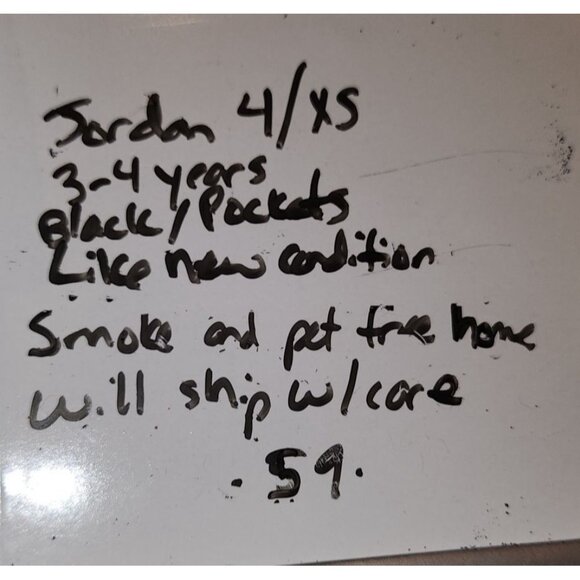 Jordan 4/XS
3-4 years
Black/Pockets
Like new condition
Smoke and pet free home
will ship w/care
. 59.